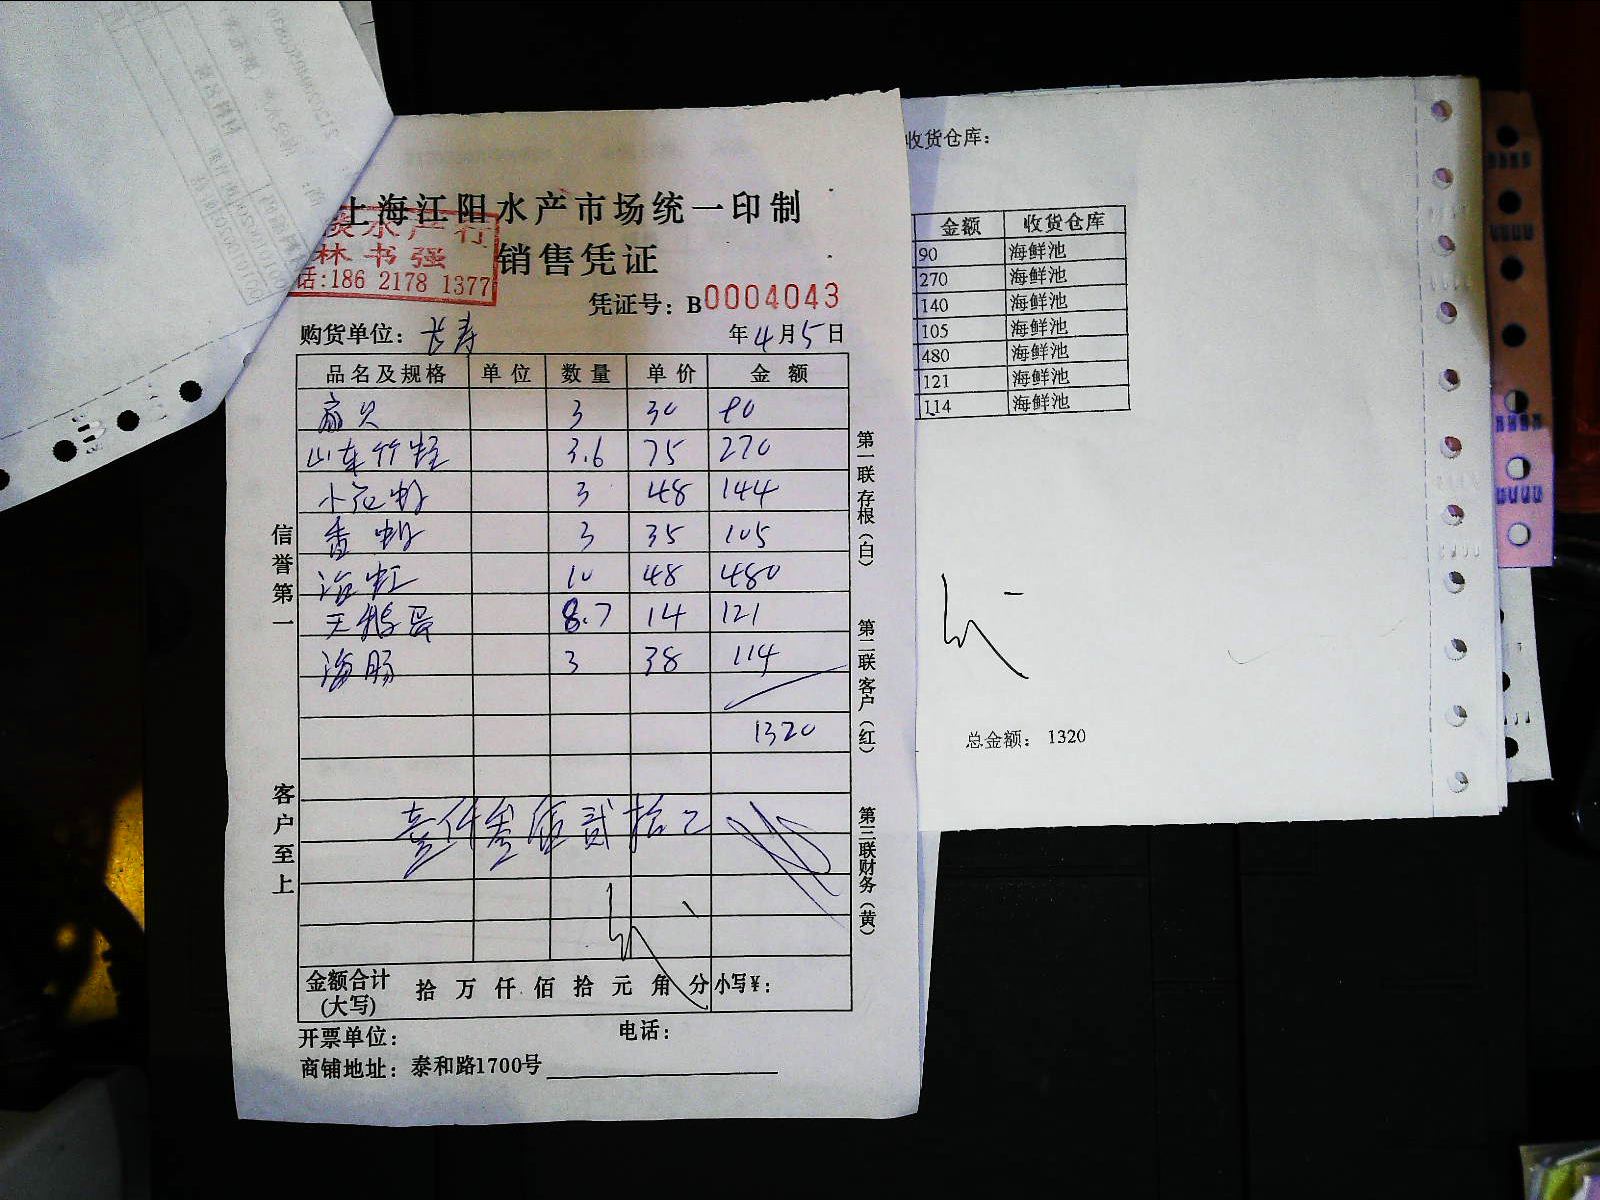 上海江阳水产市场统一印制
销售凭证
水产行
林书强
话:186 2178 1377
凭证号：B0004043
购货单位：长寿 年4月5日
品名及规格 单位 数量 单价 金额
扇贝 3 30 90
山东竹蛏 3.6 75 270
小花蛤 3 48 144
香蛤 3 35 105
活虹 10 48 480
天鹅蛋 8.7 14 121
海肠 3 38 114
1320
壹仟叁佰贰拾
金额合计(大写) 拾 万 仟 佰 拾 元 角 分 小写￥:
开票单位： 电话：
商铺地址：泰和路1700号
信誉第一
客户至上
第一联存根（白）
第二联客户（红）
第三联财务（黄）
收货仓库：
金额 收货仓库
90 海鲜池
270 海鲜池
140 海鲜池
105 海鲜池
480 海鲜池
121 海鲜池
114 海鲜池
总金额： 1320